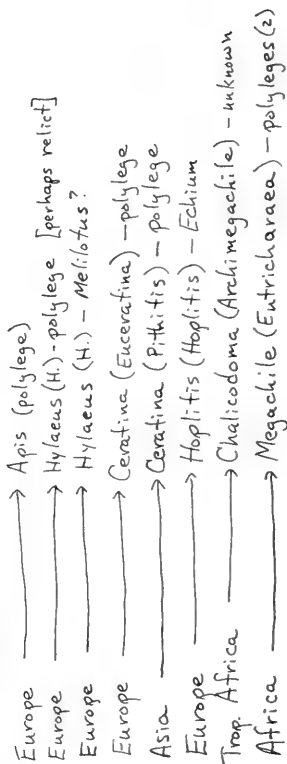 Europe ⟶ Apis (polylege)
Europe ⟶ Hylaeus (H.) - polylege [perhaps relict]
Europe ⟶ Hylaeus (H.) - Melilotus?
Europe ⟶ Ceratina (Euceratina) - polylege
Asia ⟶ Ceratina (Pithitis) - polylege
Europe ⟶ Hoplitis (Hoplitis) - Echium
Trop. Africa ⟶ Chalicodoma (Archimegachile) - unknown
Africa ⟶ Megachile (Eutricharaea) - polyleges (2)